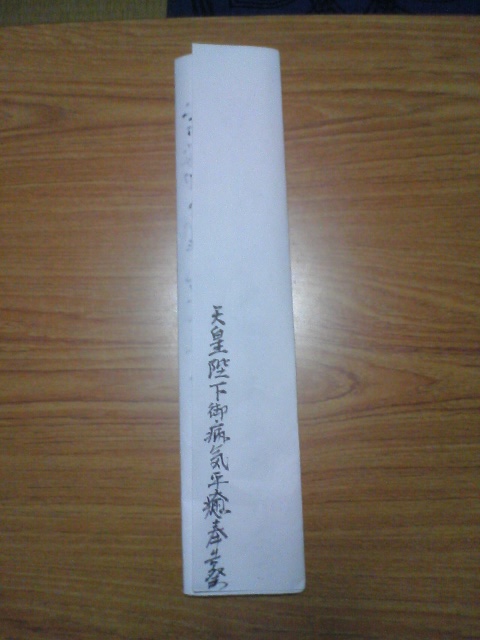 天皇陛下御病気平癒奉